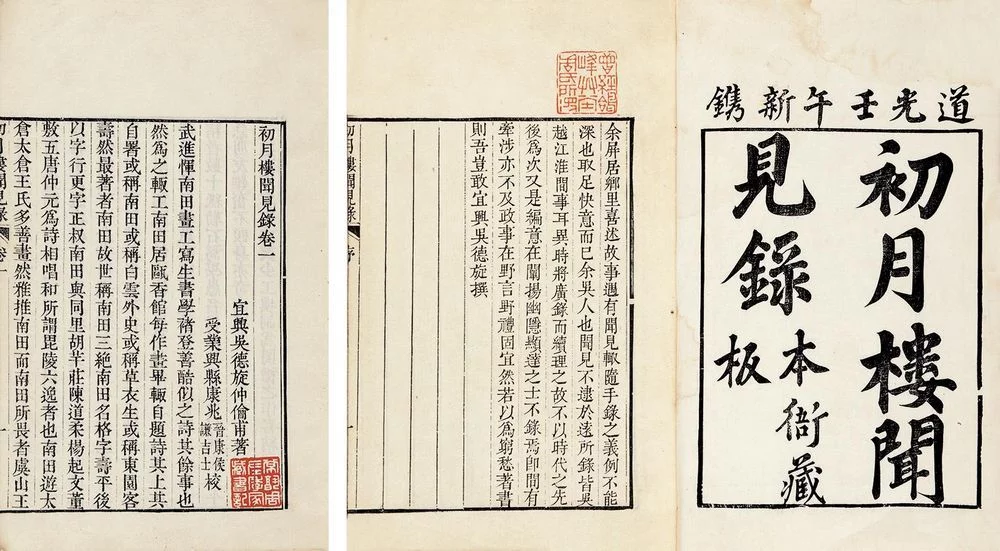 道光壬午新鐫
初月樓聞
見錄
本衙藏
板
余屏居鄉里喜述故事遇有聞見輒隨手錄之義例不能
深也取足快意而已余吳人也聞見不逮於遠所錄皆吳
越江淮間事耳異時將廣錄而續理之故不以時代之先
後為次又是編意在闡揚幽隱顯達之士不錄焉即間有
牽涉亦不及政事在野言野禮固宜然若以為窮愁著書
則吾豈敢宜興吳德旋撰
初月樓聞見錄 序
初月樓聞見錄卷一
宜興吳德旋仲倫甫著
受業興縣康兆晉康侯謙吉士校
武進惲南田畫工寫生書學褚登善酷似之詩其餘事也
然為之輒工南田居甌香館每作畫畢輒自題詩其上其
自署或稱南田或稱白雲外史或稱草衣生或稱東園客
壽然最著者南田故世稱南田三絕南田名格字壽平後
以字行更字正叔南田與同里胡芋莊陳道柔楊起文董
敷五唐仲元為詩相唱和所謂毘陵六逸者也南田遊太
倉太倉王氏多善畫然雅推南田而南田所畏者虞山王
初月樓聞見錄 卷一